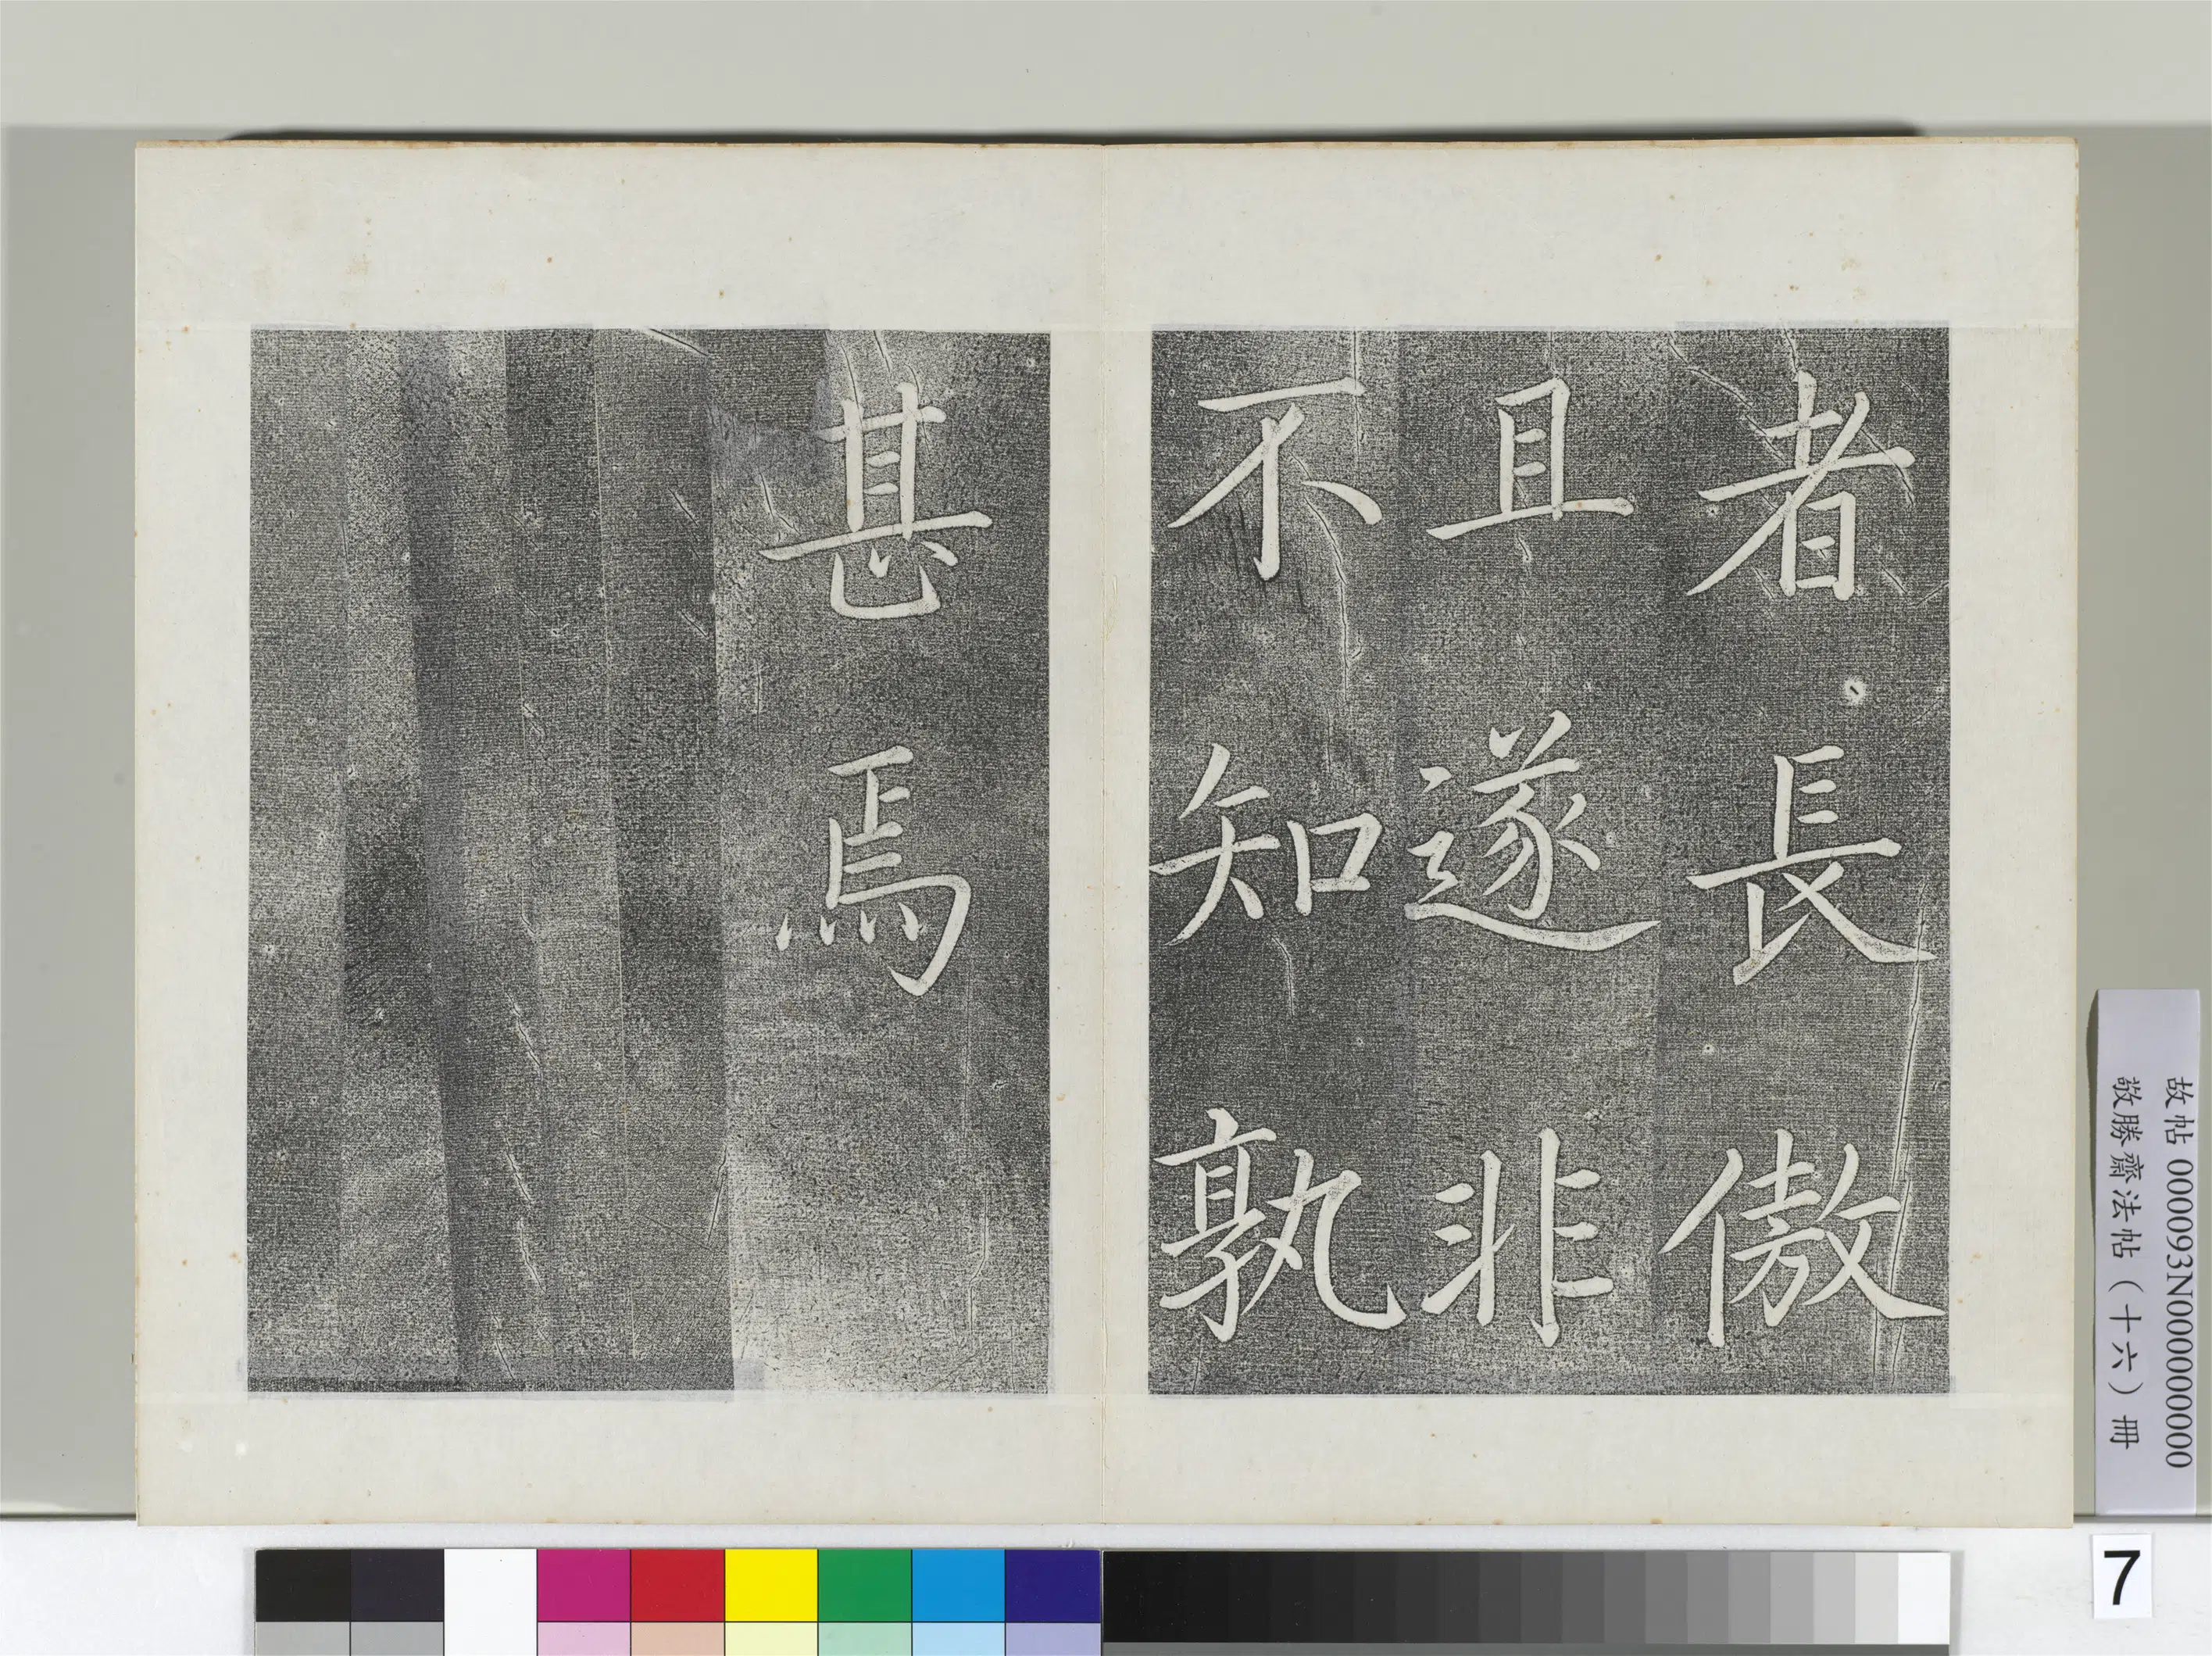 者長傲
且遂非
不知孰
甚焉
故帖 000093N000000000
敬勝齋法帖（十六）冊
7